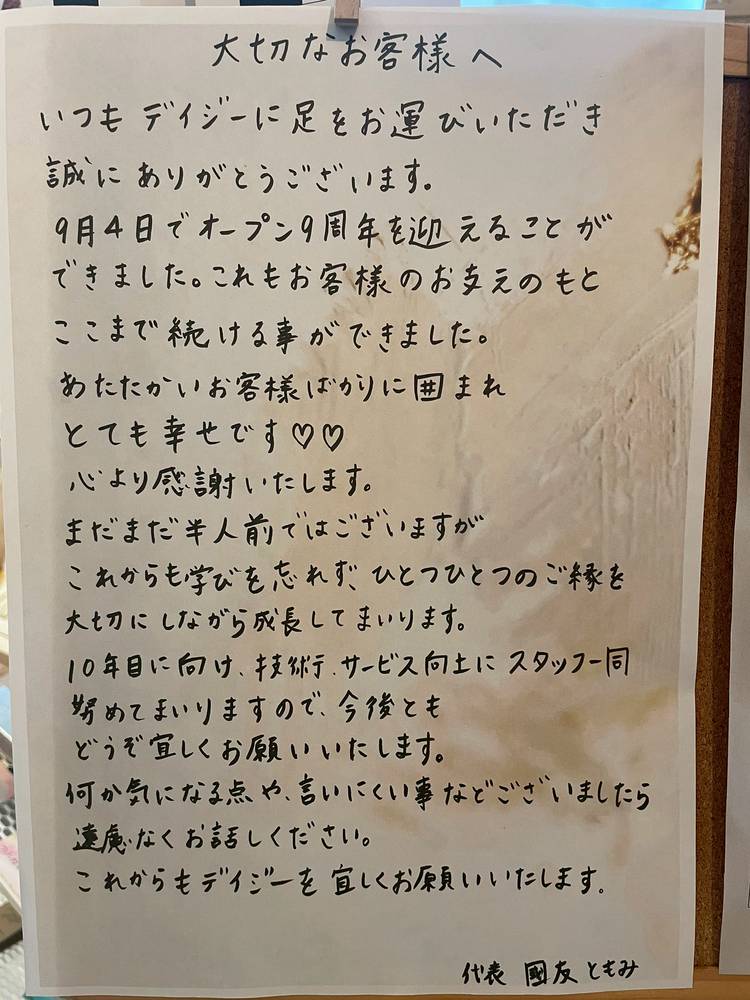 大切なお客様へ
いつも デイジーに足をお運びいただき
誠に ありがとうございます。
9月4日でオープン9周年を迎えることが
できました。これもお客様のお支えのもと
ここまで続ける事ができました。
あたたかいお客様ばかりに囲まれ
とても幸せです♡♡
心より感謝いたします。
まだまだ半人前ではございますが
これからも学びを忘れず、ひとつひとつのご縁を
大切にしながら成長してまいります。
10年目に向け、技術、サービス向上にスタッフ一同
努めてまいりますので、今後とも
どうぞ宜しくお願いいたします。
何か気になる点や、言いにくい事などございましたら
遠慮なくお話しください。
これからもデイジーを宜しくお願いいたします。
代表 國友ともみ